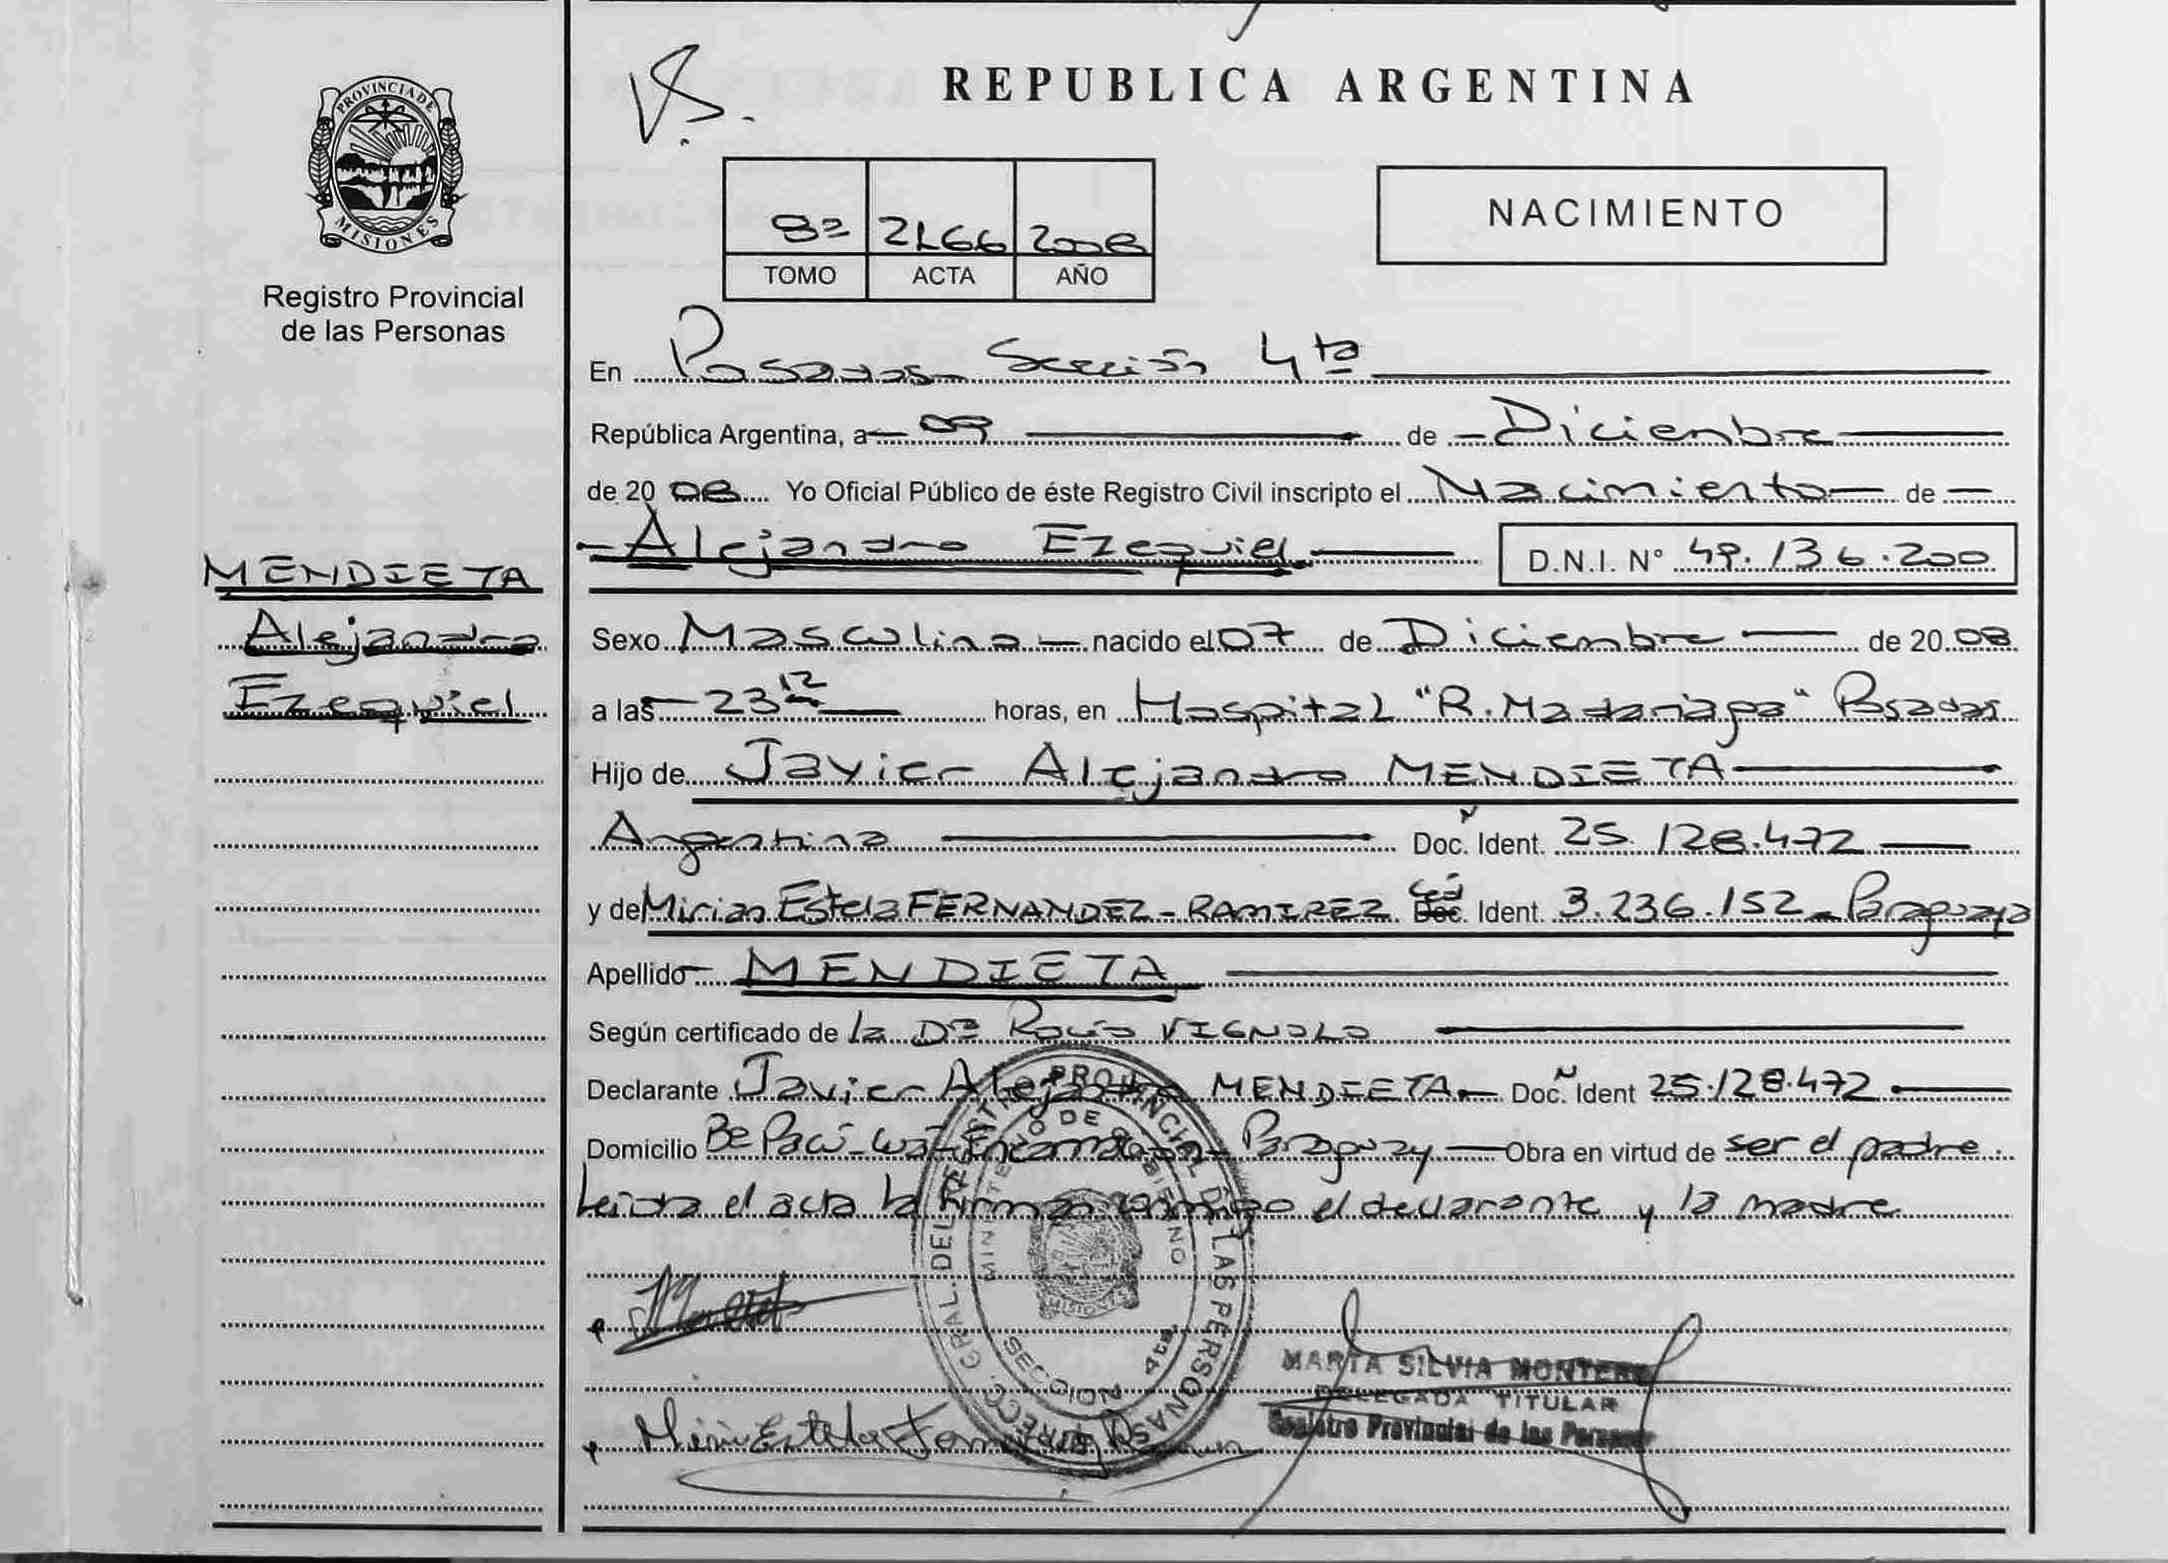 PROVINCIA DE
MISIONES
Registro Provincial
de las Personas
MENDIETA
Alejandro
Ezequiel
REPUBLICA ARGENTINA
8º 2166 2008
TOMO ACTA AÑO
NACIMIENTO
En Posadas Sección 4ta
República Argentina, a 09 de Diciembre
de 20 08 Yo Oficial Público de éste Registro Civil inscripto el Nacimiento de
Alejandro Ezequiel D.N.I. N° 49.136.200
Sexo Masculino nacido el 07 de Diciembre de 20 08
a las 23 12 horas, en Hospital "R. Madariaga" Posadas
Hijo de Javier Alejandro MENDIETA
Argentina Doc. N Ident. 25.128.472
y de Mirian Estela FERNANDEZ - RAMIREZ Ced Doc. Ident. 3.236.152 - Paraguaya
Apellido MENDIETA
Según certificado de la Dra Rocío VIGNOLO
Declarante Javier Alejandro MENDIETA Doc. N Ident 25.128.472
Domicilio Encarnación - Paraguay Obra en virtud de ser el padre.
Leída el acta la firman conmigo el declarante y la madre
DIRECC. GRAL. DEL REGISTRO PROVINCIAL DE LAS PERSONAS
MINISTERIO DE GOBIERNO
MISIONES
SECCION 4ta.
MARTA SILVIA MONTERO
DELEGADA TITULAR
Registro Provincial de las Personas